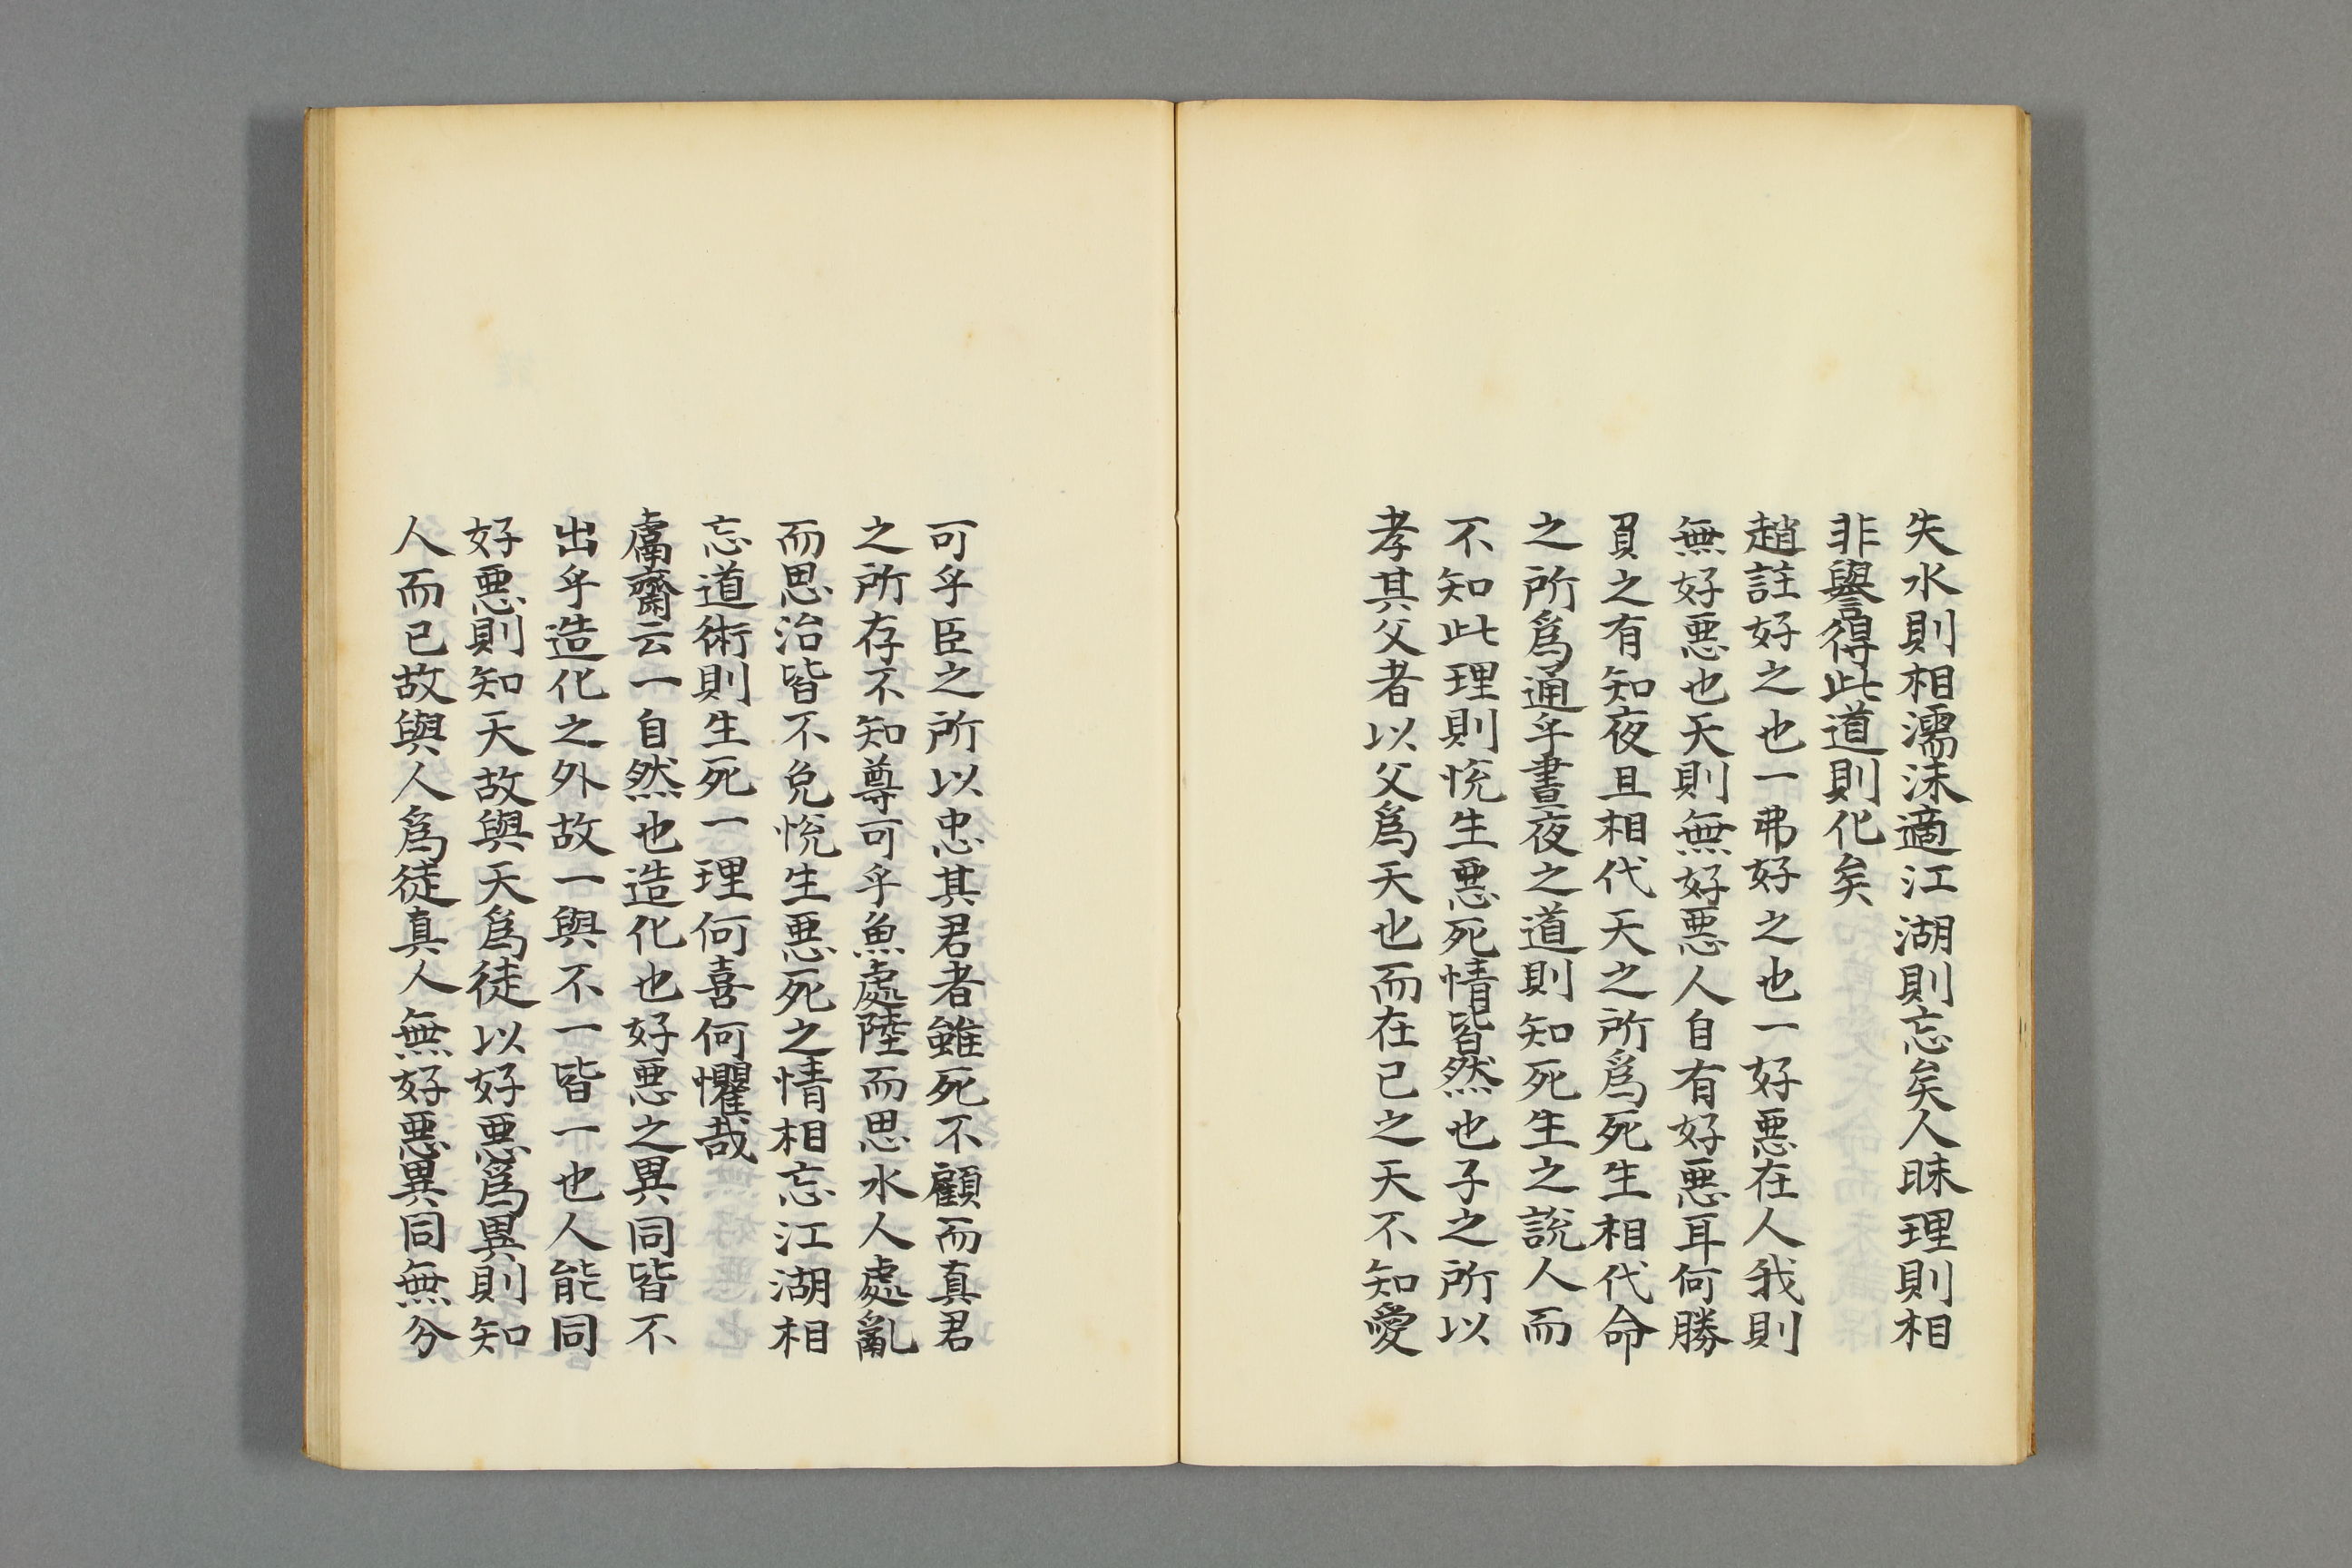 失水則相濡沫適江湖則忘矣人昧理則相
非譽得此道則化矣
趙註好之也一弗好之也一好惡在人我則
無好惡也天則無好惡人自有好惡耳何勝
負之有知夜旦相代天之所爲死生相代命
之所爲通乎晝夜之道則知死生之說人而
不知此理則悅生惡死情皆然也子之所以
孝其父者以父爲天也而在己之天不知愛
可乎臣之所以忠其君者雖死不顧而真君
之所存不知尊可乎魚處陸而思水人處亂
而思治皆不免悅生惡死之情相忘江湖相
忘道術則生死一理何喜何懼哉
鬳齋云一自然也造化也好惡之異同皆不
出乎造化之外故一與不一皆一也人能同
好惡則知天故與天爲徒以好惡爲異則知
人而已故與人爲徒真人無好惡異同無分